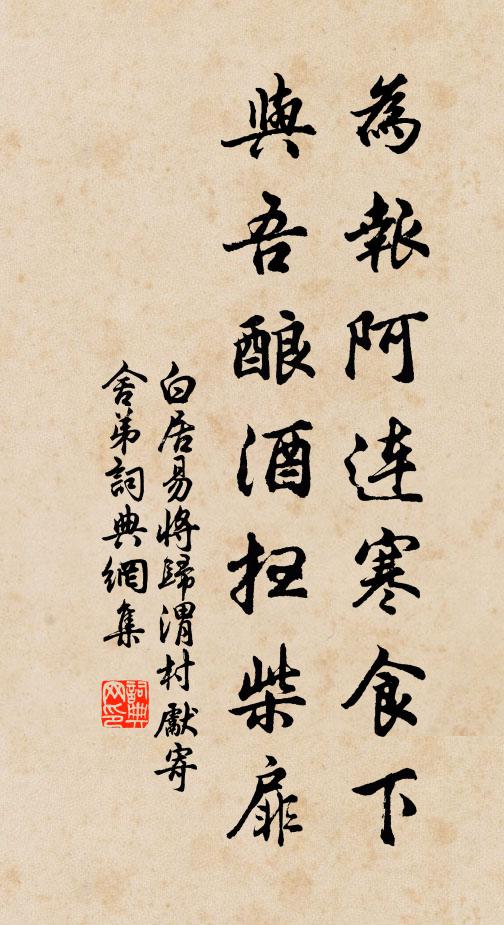 為報阿連寒食下
與吾釀酒扫柴扉
白居易將歸渭村獻寄
舍弟詞典網集
詞典网印